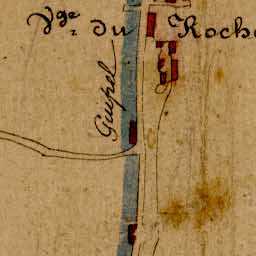 Vge. du Roche
Guipel